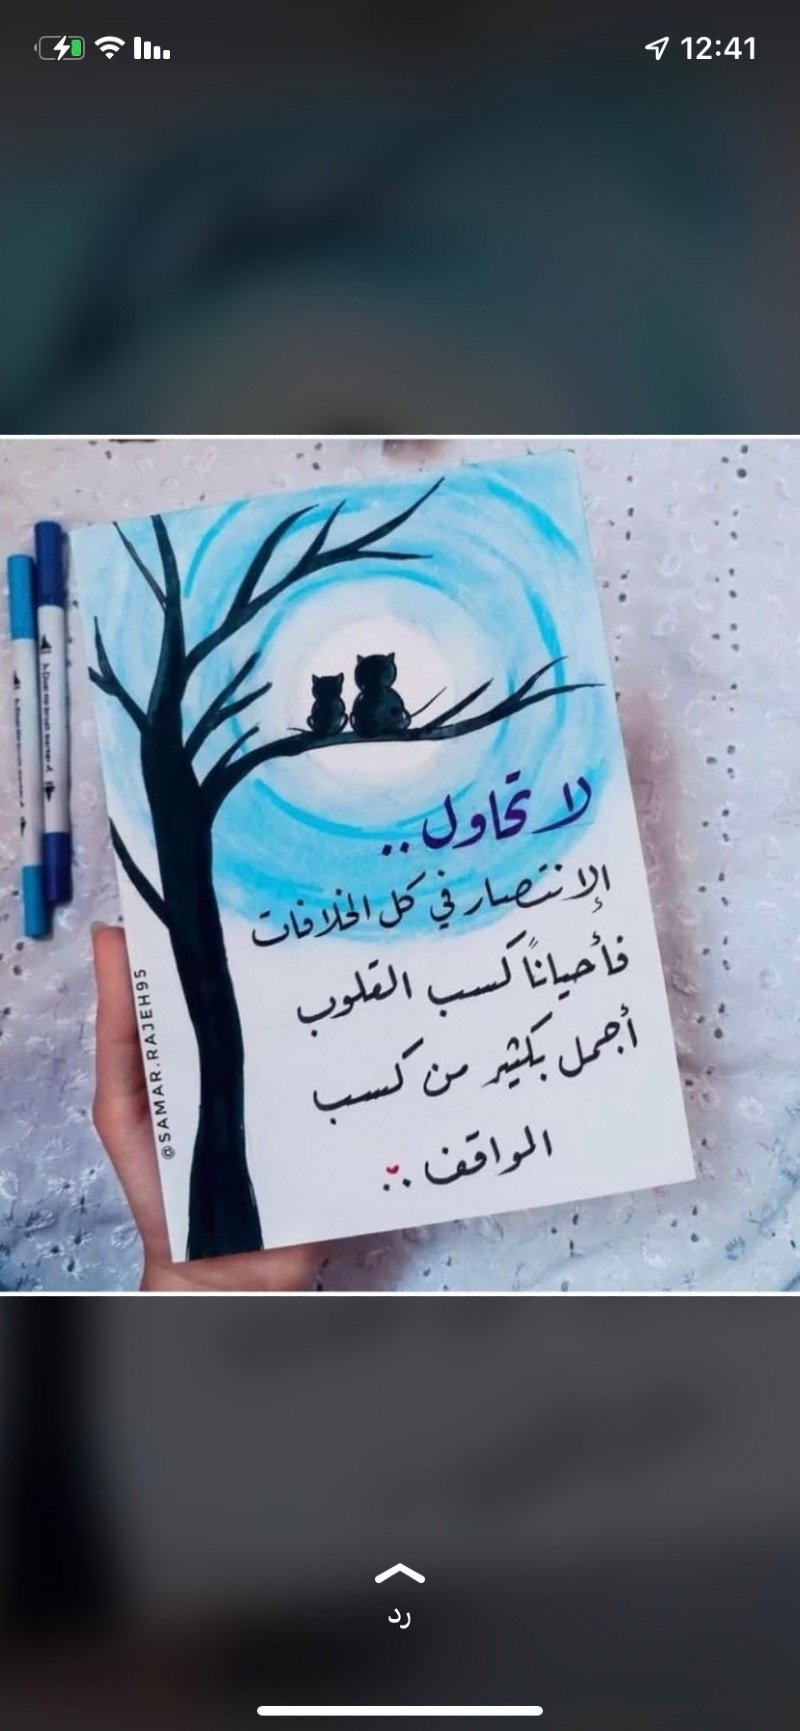 12:41
لا تحاول..
الإنتصار في كل الخلافات
فأحياناً كسب القلوب
أجمل بكثير من كسب
المواقف..
@SAMAR.RAJEH95
رد